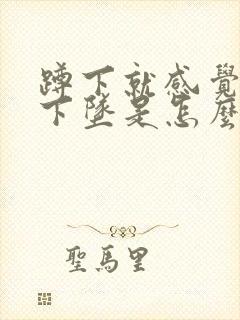 蹲下就感覺
下墜是怎麼
聖馬里